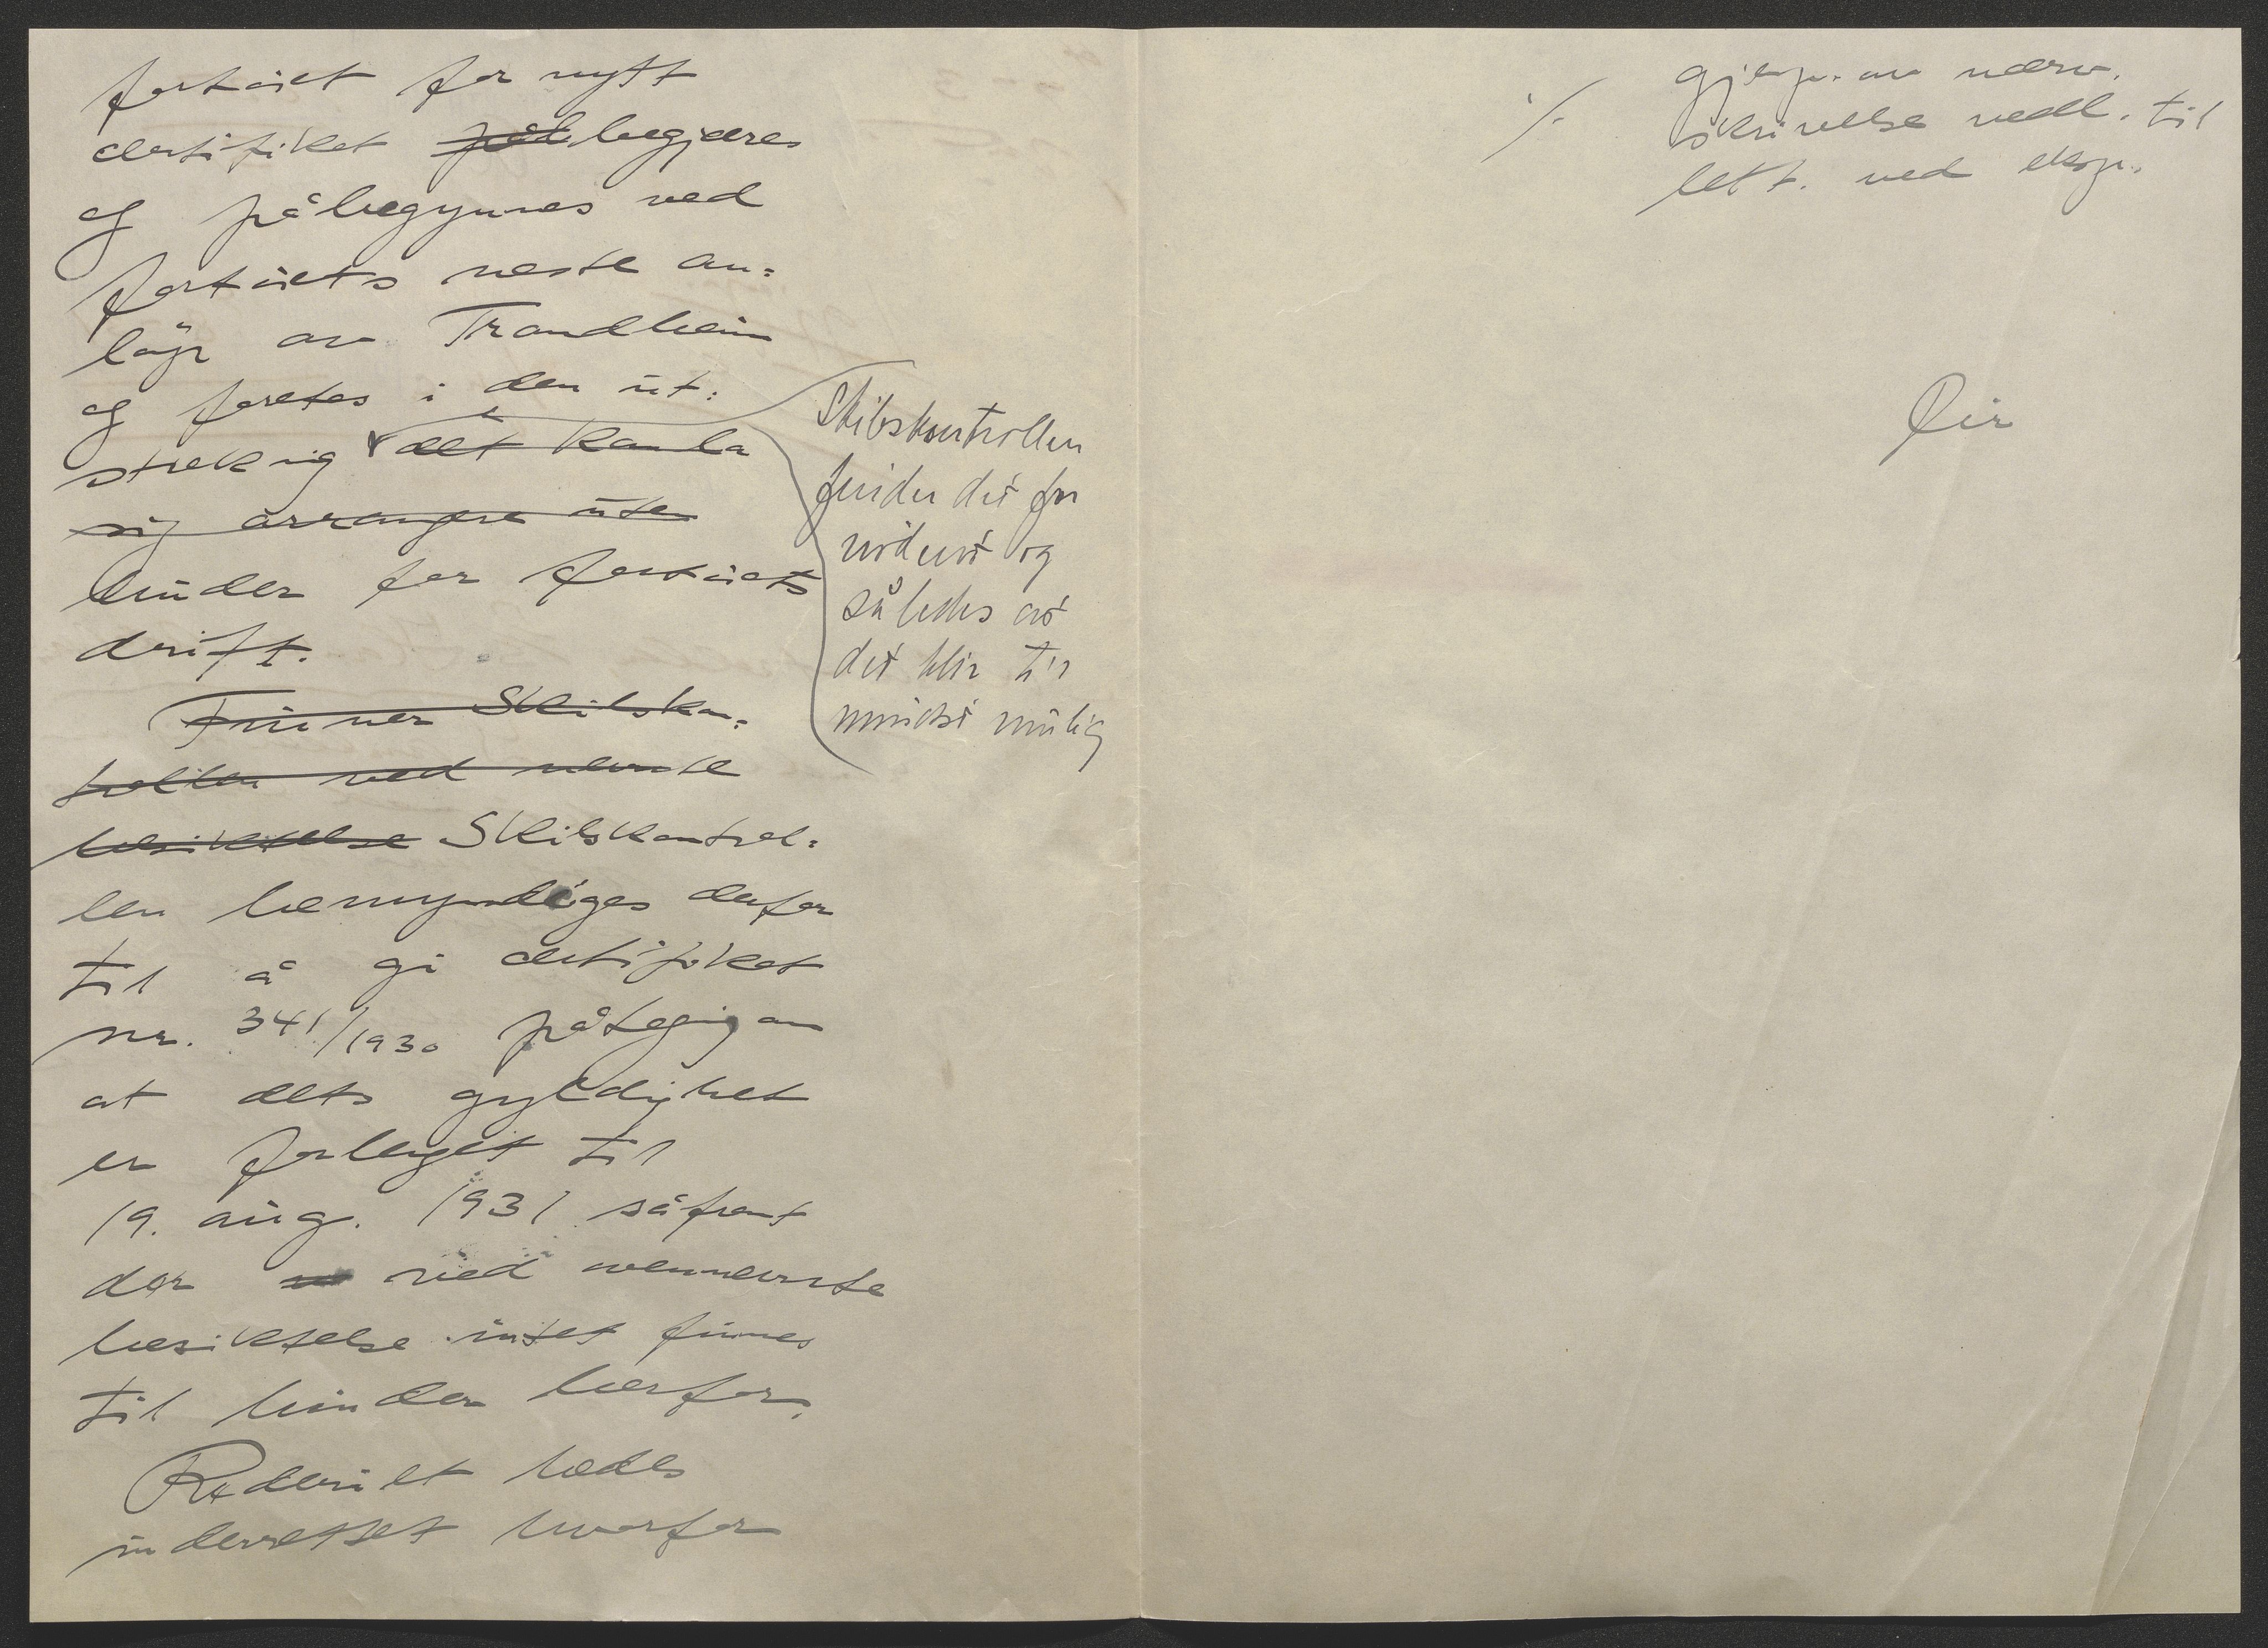 fartøiet for nytt
sertifikat på begjæres
og påbegynnes ved
fartøiets neste an=
løp av Trondheim
og foretas i den ut=
strekning det kan la
sig arrangere uten
hinder for fartøiets
drift.
Skibskontrollen
finder det for
nødvent og
således at
det blir til
minst mulig
Finner Skibskon=
trollen ved nevnte
besiktelse Skibskontrol=
len bemyndiges derfor
til å gi sertifikat
nr. 341/1930 påtegning om
at dets gyldighet
er forlenget til
19. aug. 1931 såfremt
der ved ovennevnte
besiktelse intet finnes
til hinder herfor.
Rederiet bedes
underrettet hvorfor
./. gjenp. av nærv.
skrivelse vedl. til
lett. ved eksp.
Dir